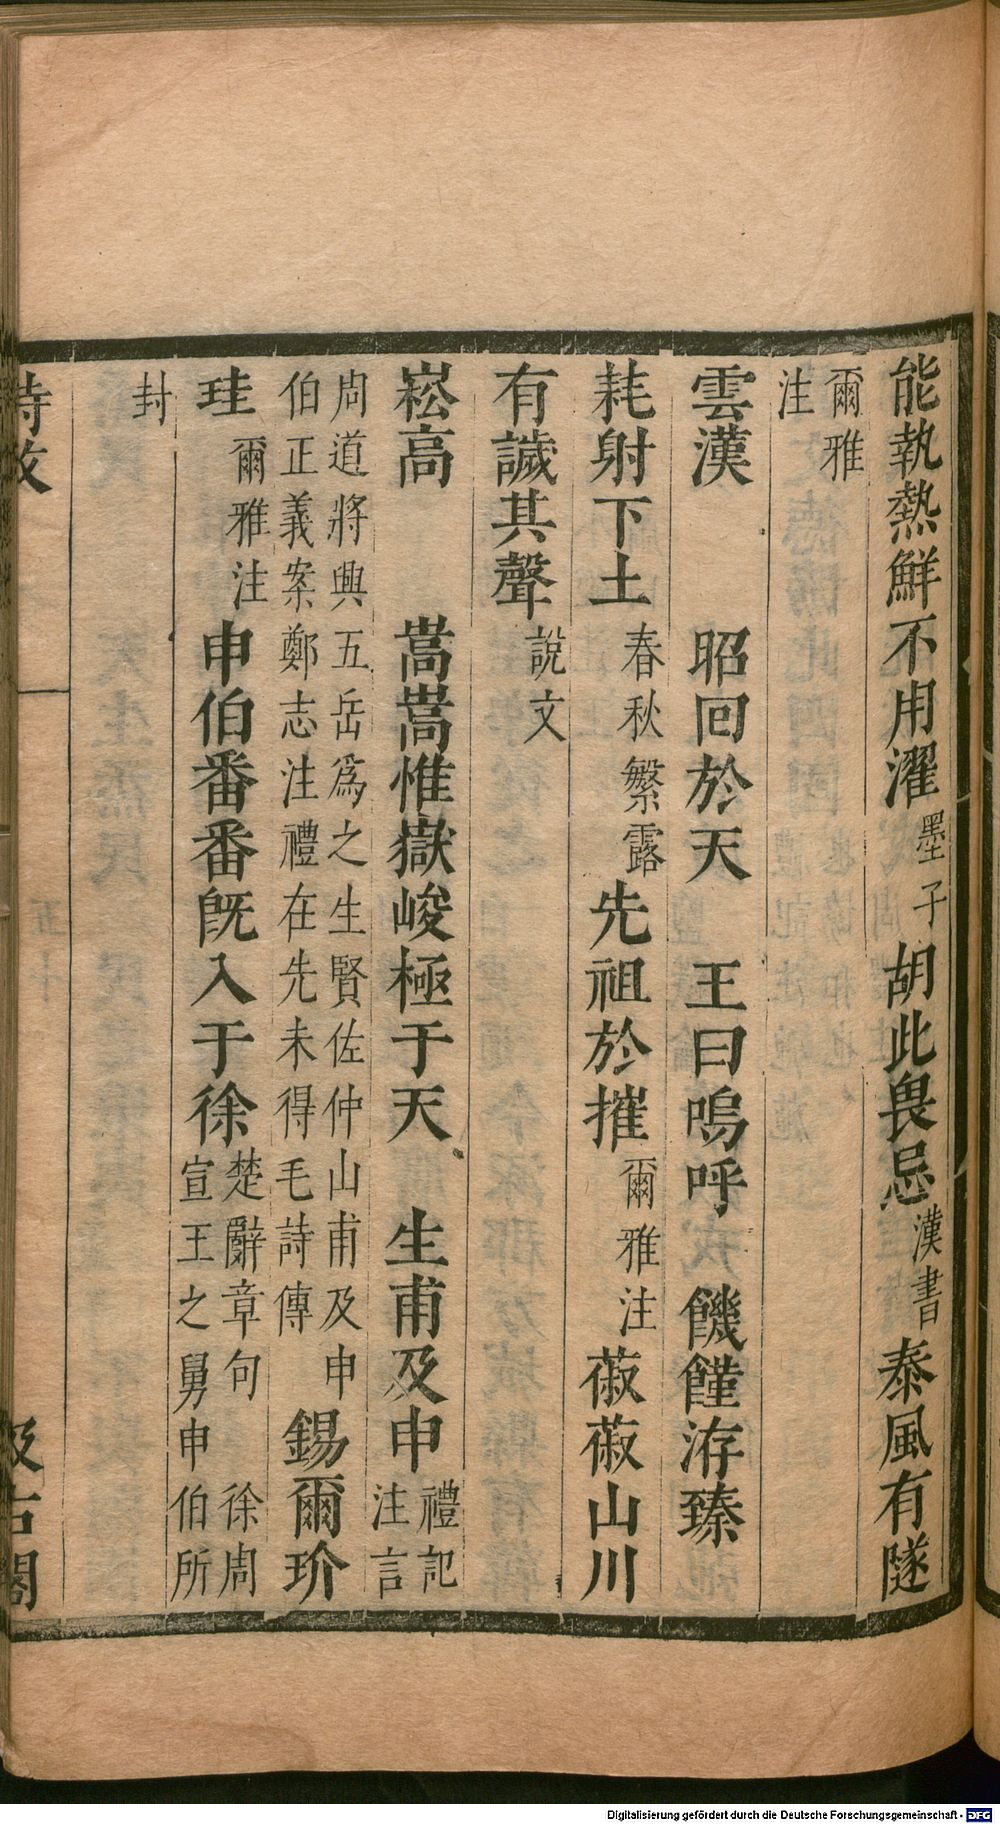 能執熱鮮不用濯墨子　胡此畏忌漢書　泰風有隧
爾雅
注
雲漢　昭回於天　王曰嗚呼　饑饉洊臻
耗射下土春秋繁露　先祖於摧爾雅注　蔋蔋山川
有𧬨其聲說文
崧高　嵩嵩惟嶽峻極于天　生甫及申禮記
注言
周道將興五岳爲之生賢佐仲山甫及申
伯正義案鄭志注禮在先未得毛詩傳　錫爾玠
珪爾雅注　申伯番番旣入于徐楚辭章句　徐周
宣王之舅申伯所
封
詩攷
汲古閣
Digitalisierung gefördert durch die Deutsche Forschungsgemeinschaft - DFG